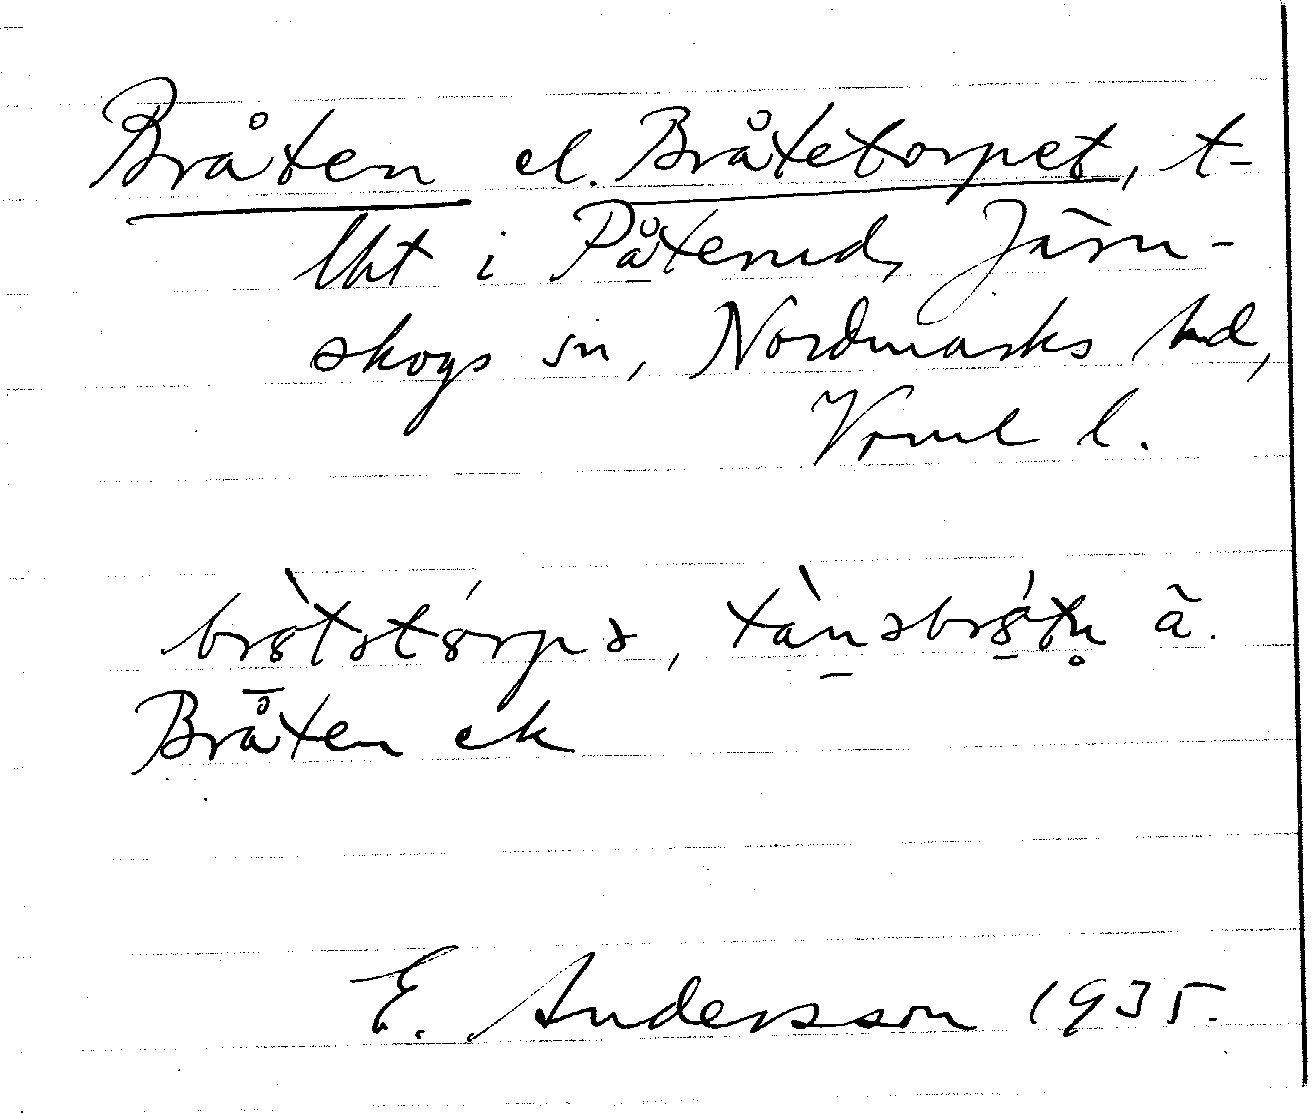 Bråten el. Bråtetorpet, t-
lht i Påterud, Järn-
skogs sn, Nordmarks hd,
Vrml l.
brɷ̀tətɷ́rpə, tàn̠əbrɷ̠́tn̥ ã.
Brå̄ten ek
E. Andersson 1935.